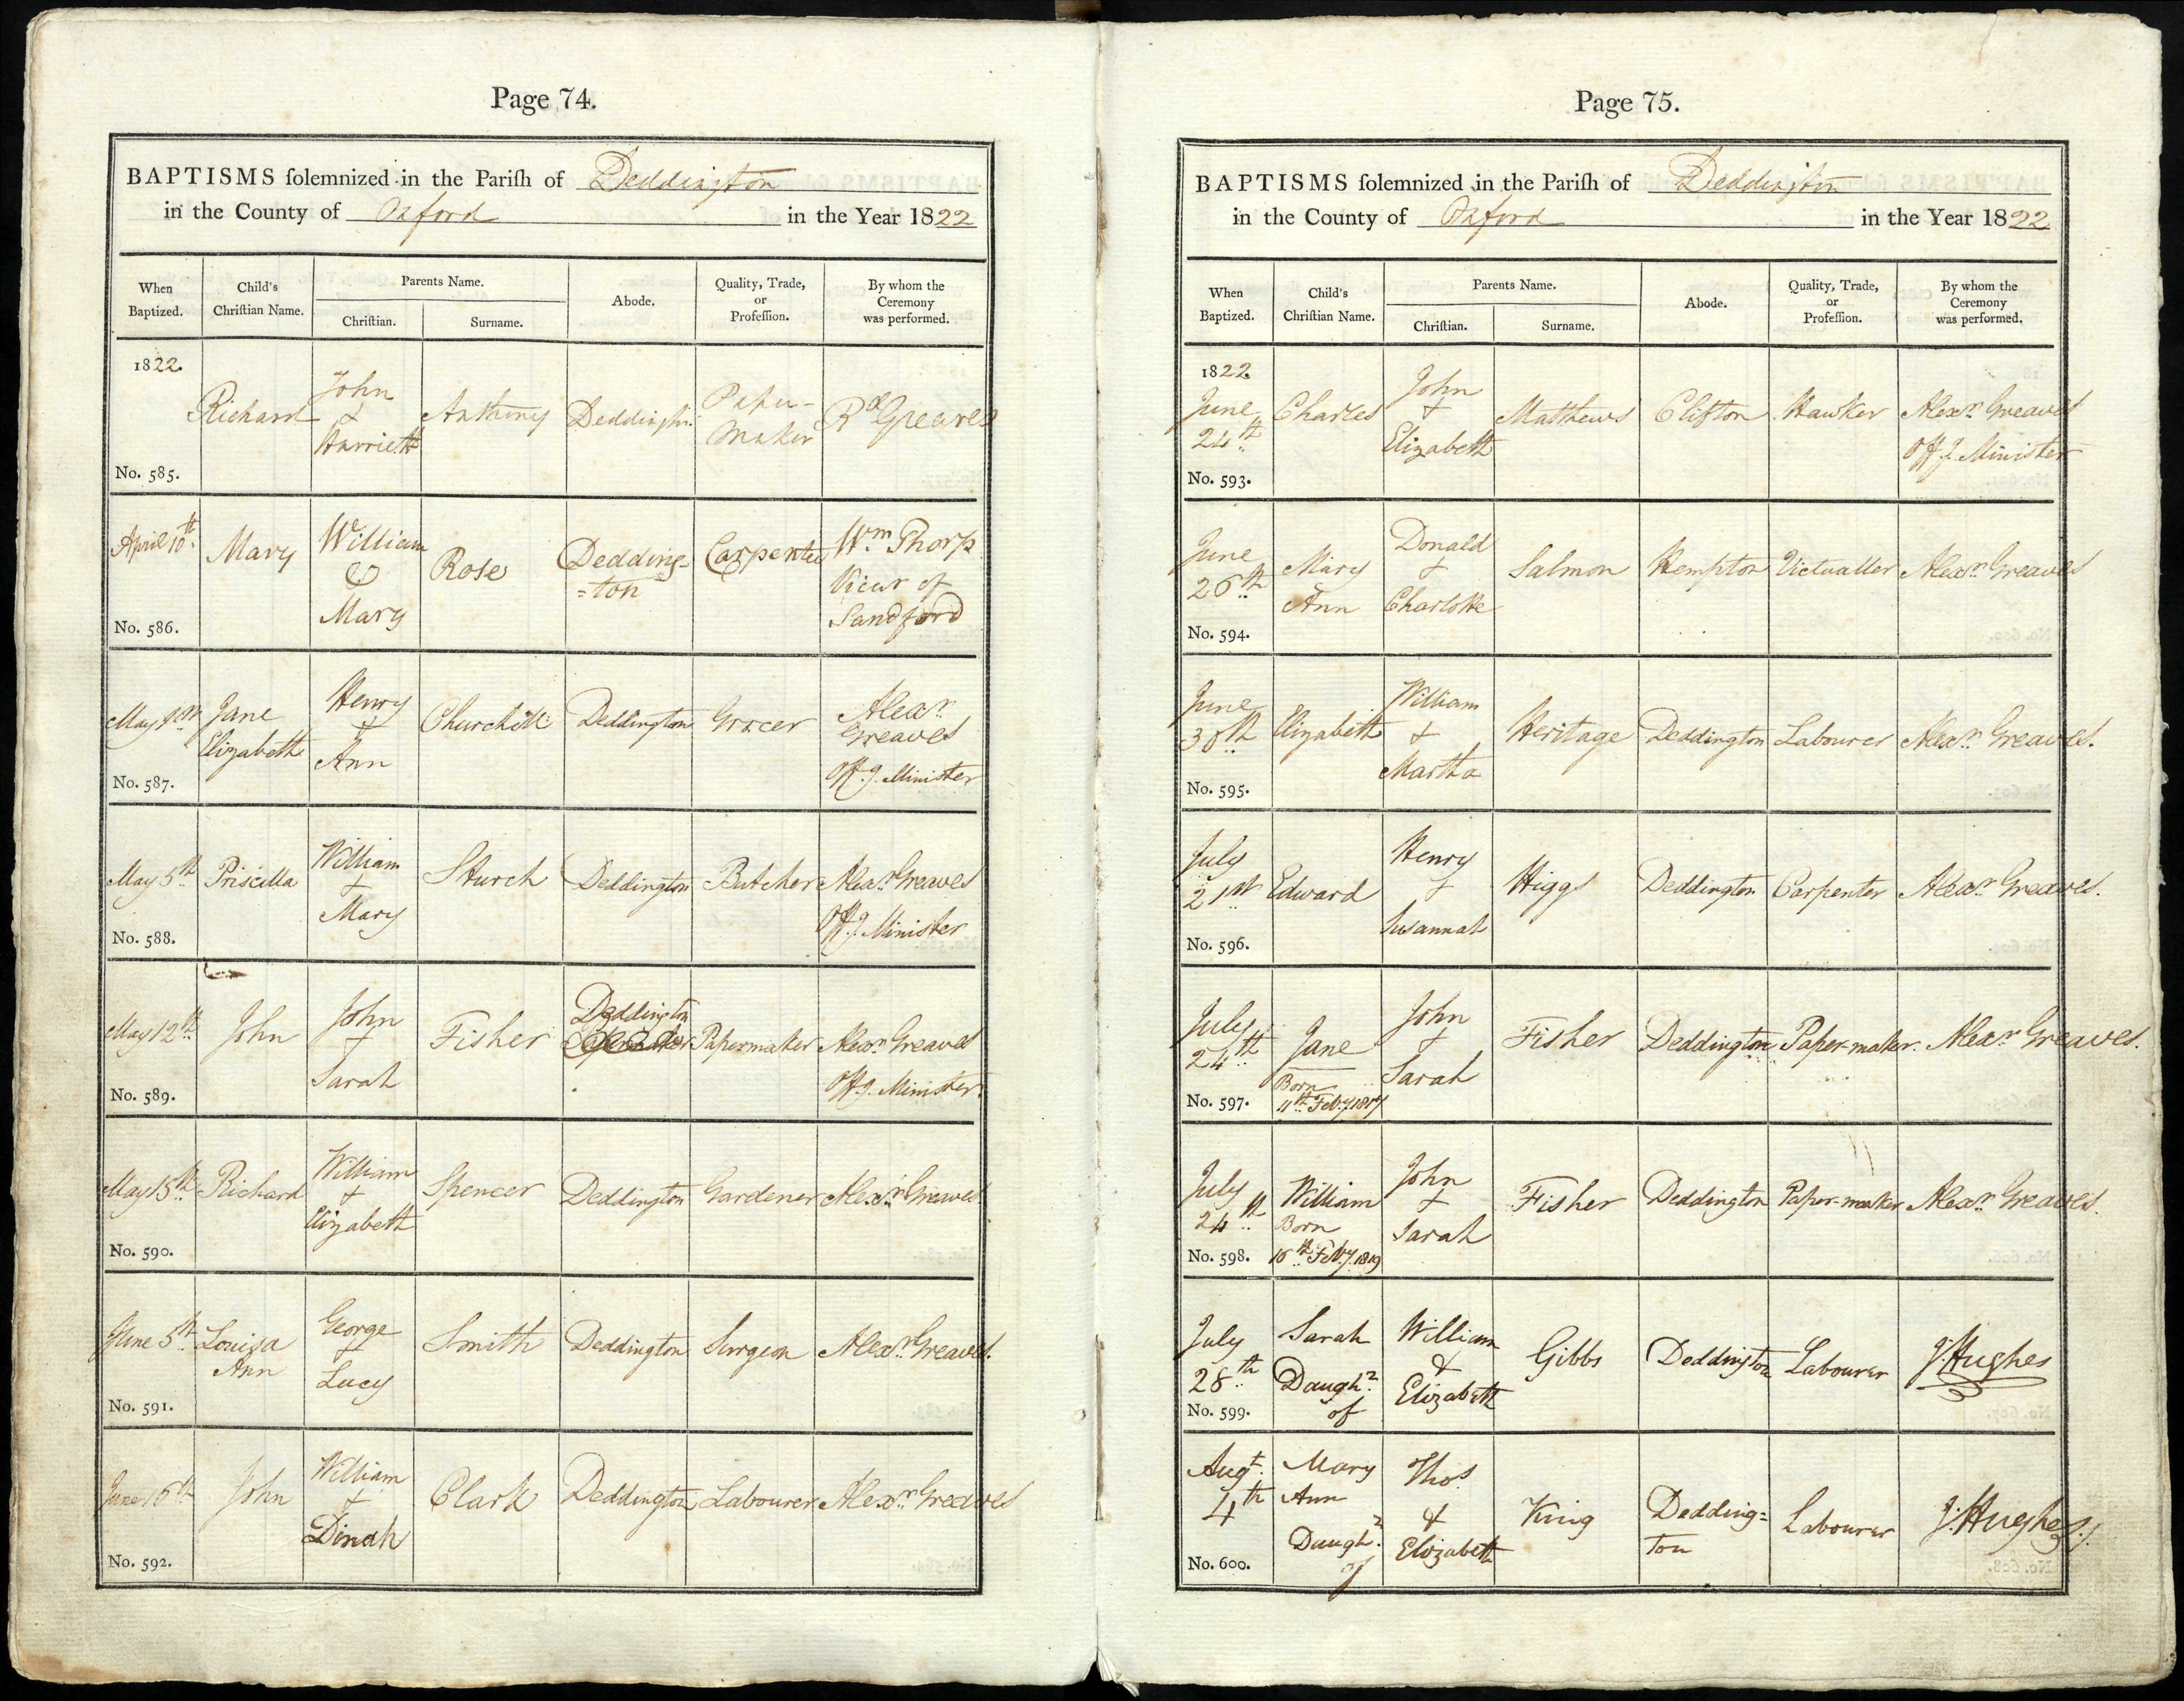 Page 74.
BAPTISMS solemnized in the Parish of Deddington
in the County of Oxford in the Year 1822
When Baptized. Child's Christian Name. Parents Name. Christian. Surname. Abode. Quality, Trade, or Profession. By whom the Ceremony was performed.
1822.
Richard
John
&
Harriett
Anthony
Deddington
Paper-
maker
Rd Greaves
No. 585.
April 10th
Mary
William
&
Mary
Rose
Dedding-
=ton
Carpenter
Wm Thorp
Vicar of
Sandford
No. 586.
May 1st
Jane
Elizabeth
Henry
&
Ann
Churchill
Deddington
Grocer
Alexr
Greaves
Offg. Minister
No. 587.
May 5th
Priscilla
William
&
Mary
Sturch
Deddington
Butcher
Alexr Greaves
Offg. Minister
No. 588.
May 12th
John
John
&
Sarah
Fisher
Deddington
Papermaker
Alexr Greaves
Offg. Minister.
No. 589.
May 15th
Richard
William
&
Elizabeth
Spencer
Deddington
Gardener
Alexr Greaves
No. 590.
June 5th
Louisa
Ann
George
&
Lucy
Smith
Deddington
Surgeon
Alexr Greaves.
No. 591.
June 16th
John
William
&
Dinah
Clark
Deddington
Labourer
Alexr Greaves
No. 592.
Page 75.
BAPTISMS solemnized in the Parish of Deddington
in the County of Oxford in the Year 1822
When Baptized. Child's Christian Name. Parents Name. Christian. Surname. Abode. Quality, Trade, or Profession. By whom the Ceremony was performed.
1822
June
24th
Charles
John
&
Elizabeth
Mathews
Clifton
Hawker
Alexr Greaves
Offg. Minister
No. 593.
June
26th
Mary
Ann
Donald
&
Charlotte
Salmon
Hempton
Victualler
Alexr Greaves
No. 594.
June
30th
Elizabeth
William
&
Martha
Heritage
Deddington
Labourer
Alexr Greaves.
No. 595.
July
21st
Edward
Henry
&
Susannah
Higgs
Deddington
Carpenter
Alexr Greaves.
No. 596.
July
24th
Jane
Born
11th Feby. 1817
John
&
Sarah
Fisher
Deddington
Paper-maker.
Alexr Greaves.
No. 597.
July
24th
William
Born
16th Feby. 1819
John
&
Sarah
Fisher
Deddington
Paper-maker
Alexr Greaves.
No. 598.
July
28th
Sarah
Daughr.
of
William
&
Elizabeth
Gibbs
Deddington
Labourer
J. Hughes
No. 599.
Augt.
4th
Mary
Ann
Daughr.
of
Thos
&
Elizabeth
King
Dedding=
ton
Labourer
J. Hughes
No. 600.